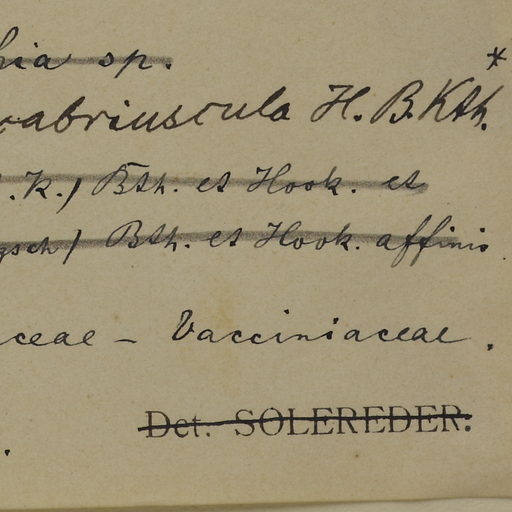 hia sp. *
cabriuscula H. B. Kth.
. K.) Bth. et Hook. et
gsch) Bth. et Hook. affinis.
ceae – Vacciniaceae.
Det. SOLEREDER.